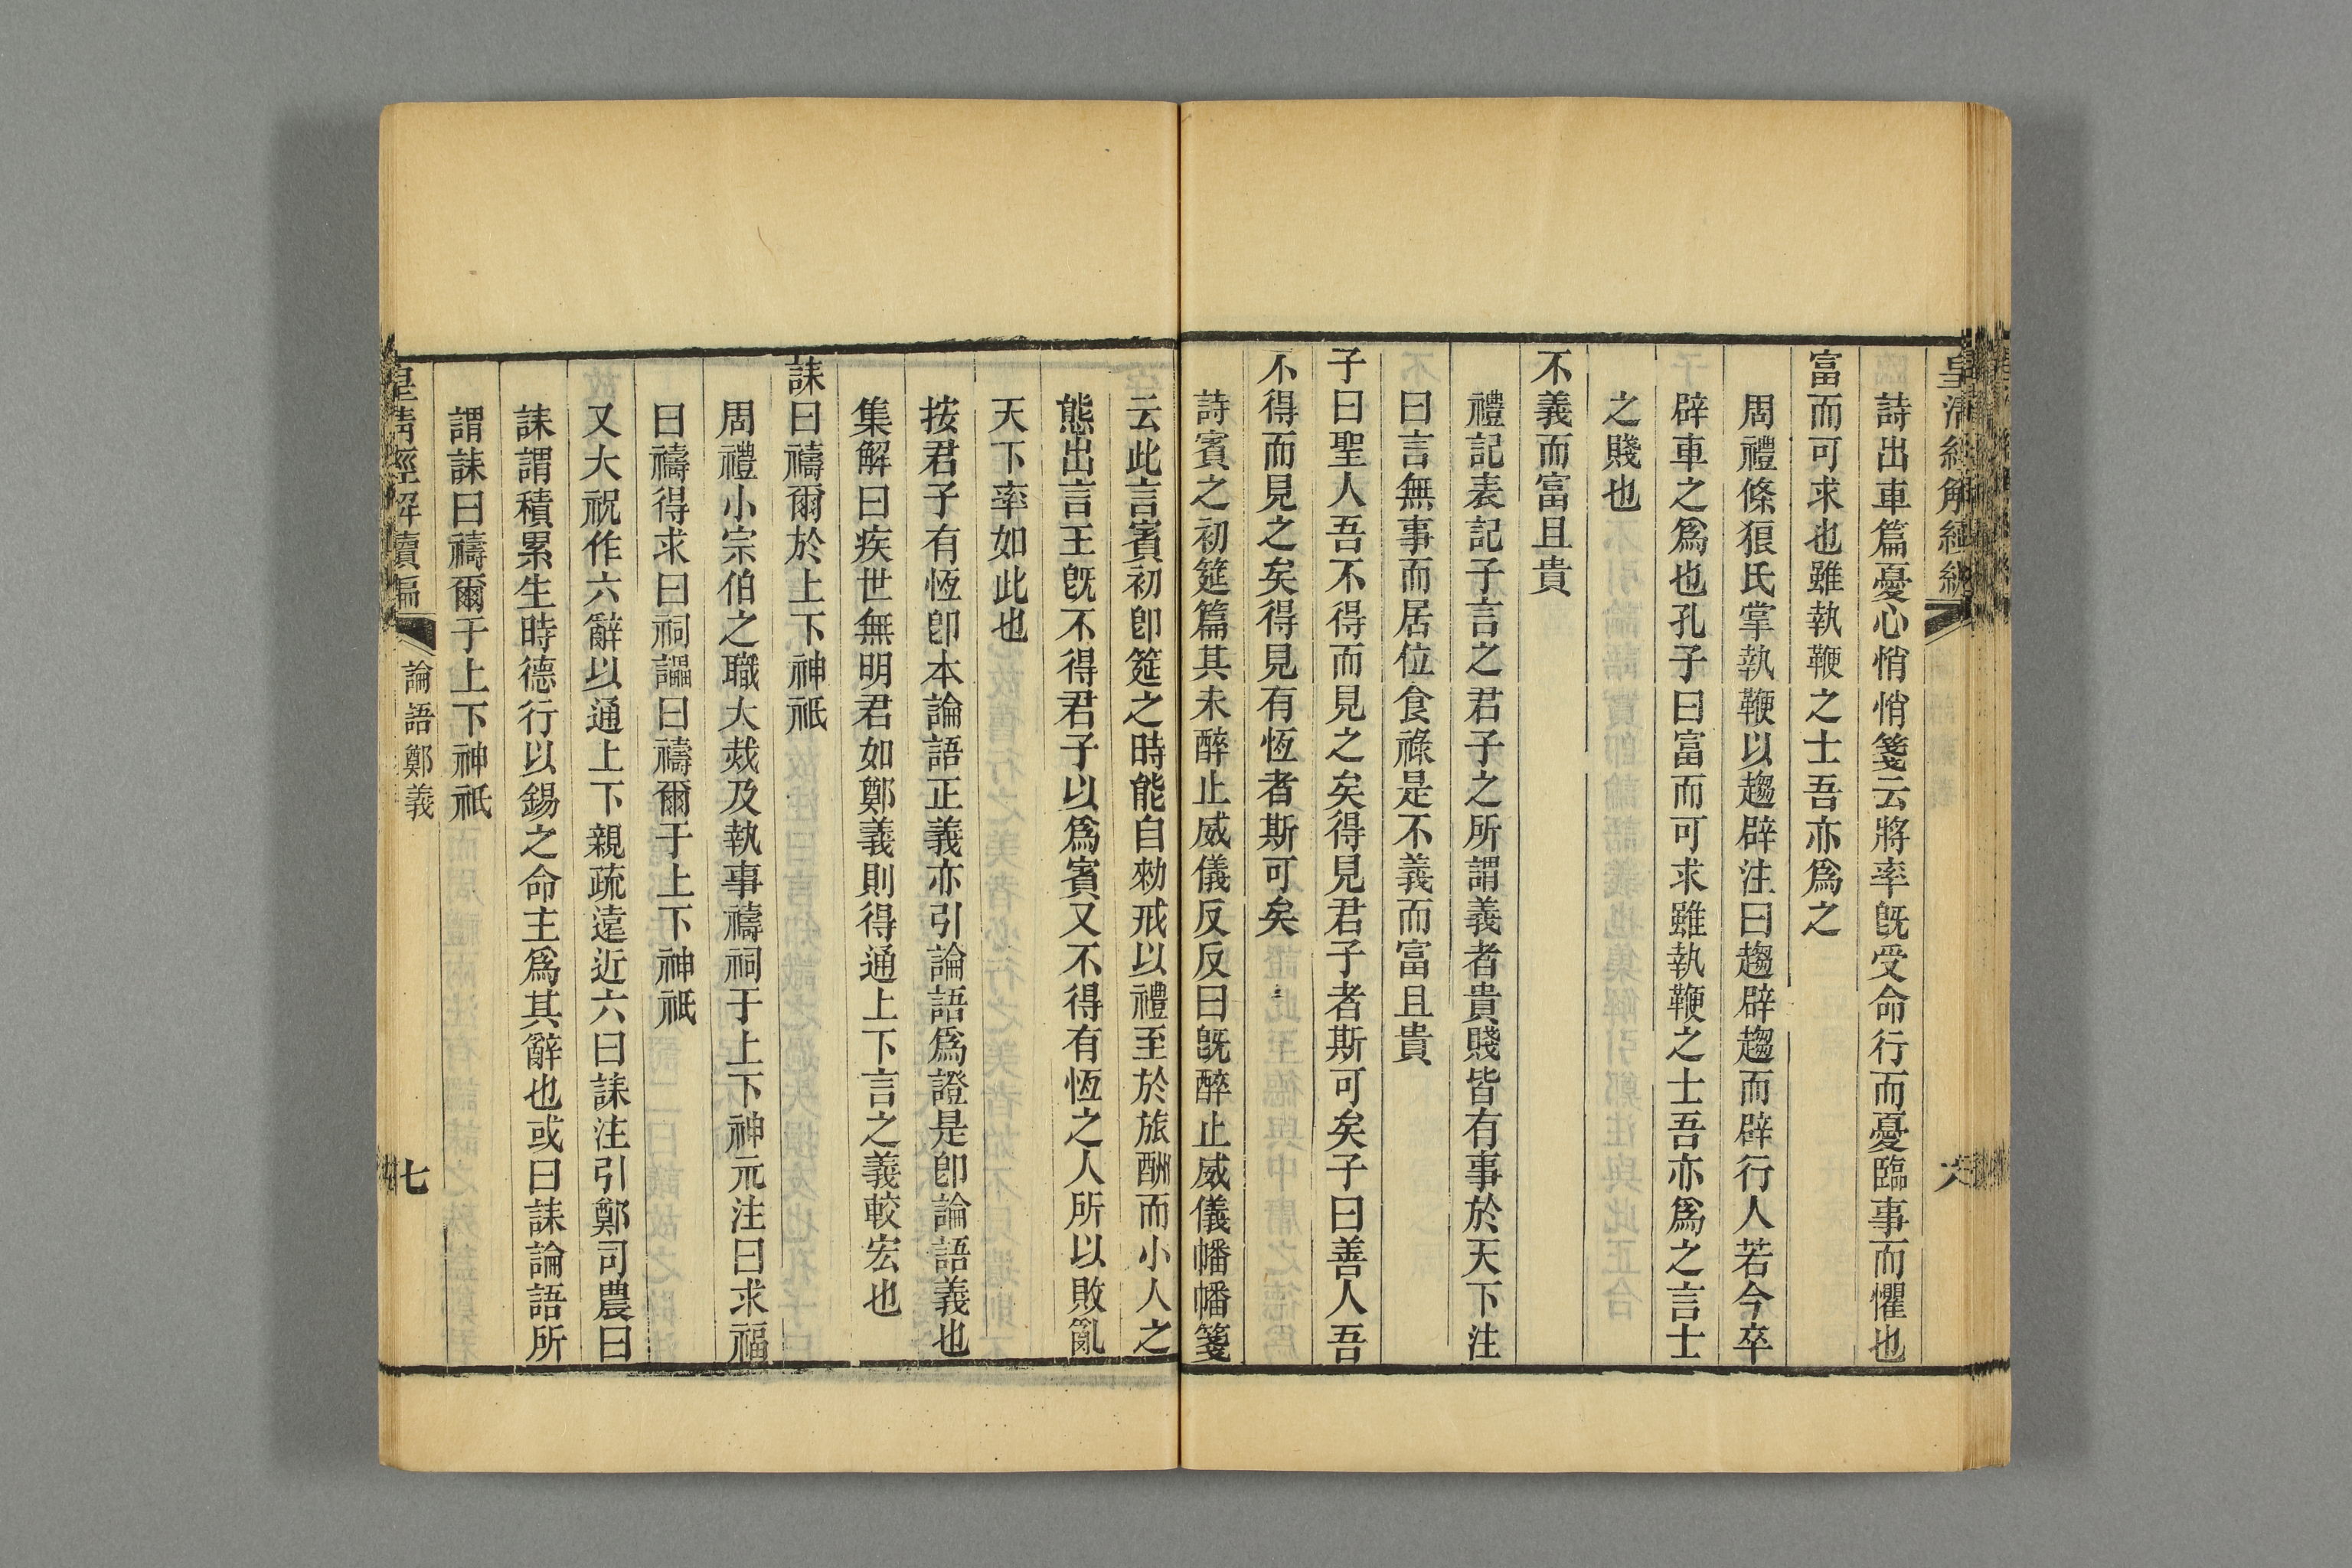 詩出車篇憂心悄悄箋云將率旣受命行而憂臨事而懼也
富而可求也雖執鞭之士吾亦爲之
周禮條狼氏掌執鞭以趨辟注曰趨辟趨而辟行人若今卒
辟車之爲也孔子曰富而可求雖執鞭之士吾亦爲之言士
之賤也
不義而富且貴
禮記表記子言之君子之所謂義者貴賤皆有事於天下注
曰言無事而居位食祿是不義而富且貴
子曰聖人吾不得而見之矣得見君子者斯可矣子曰善人吾
不得而見之矣得見有恆者斯可矣
詩賓之初筵篇其未醉止威儀反反曰旣醉止威儀幡幡箋
云此言賓初卽筵之時能自勑戒以禮至於旅酬而小人之
態出言王旣不得君子以爲賓又不得有恆之人所以敗亂
天下率如此也
按君子有恆卽本論語正義亦引論語爲證是卽論語義也
集解曰疾世無明君如鄭義則得通上下言之義較宏也
誄曰禱爾於上下神祇
周禮小宗伯之職大烖及執事禱祠于上下神示注曰求福
曰禱得求曰祠讄曰禱爾于上下神祇
又大祝作六辭以通上下親疏遠近六曰誄注引鄭司農曰
誄謂積累生時德行以錫之命主爲其辭也或曰誄論語所
謂誄曰禱爾于上下神祇
皇清經解續編
論語鄭義
七